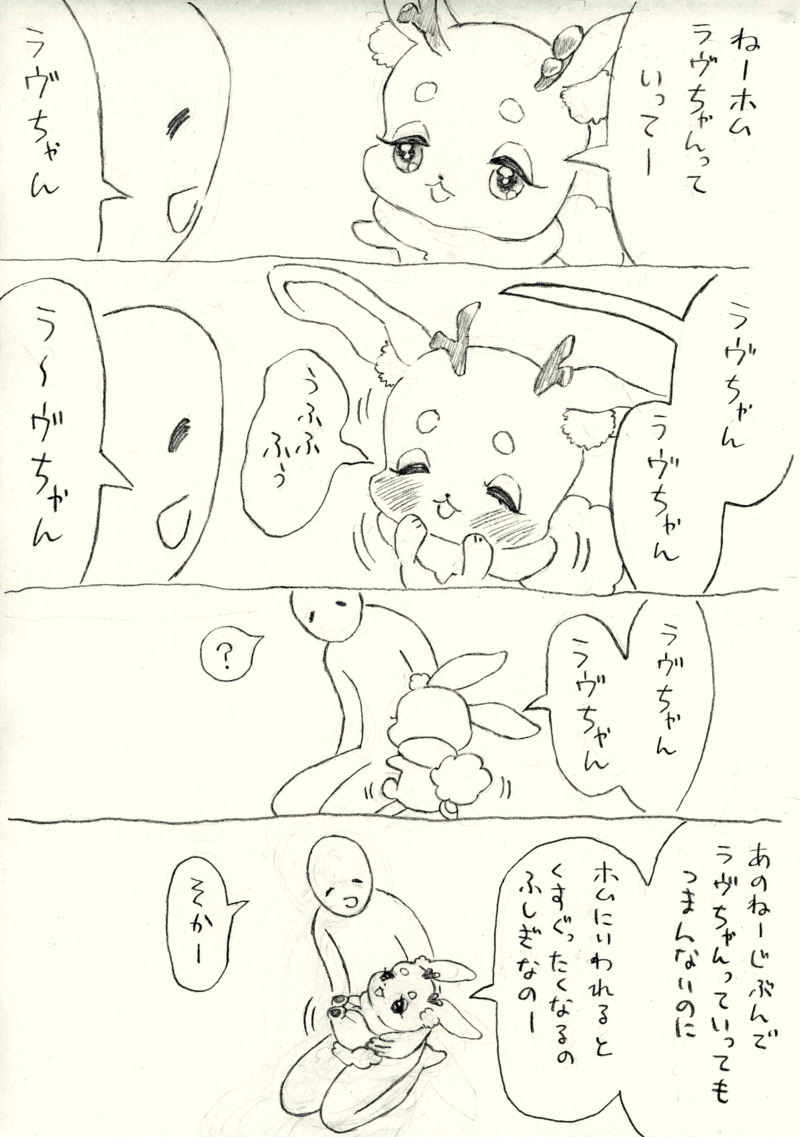 ねーホム
ラヴちゃんって
いってー
ラヴちゃん
ラヴちゃん
ラヴちゃん
うふふ
ふぅ
う〜ヴちゃん
ラヴちゃん
ラヴちゃん
?
あのねーじぶんで
ラヴちゃんっていっても
つまんないのに
ホムにいわれると
くすぐったくなるの
ふしぎなのー
そかー